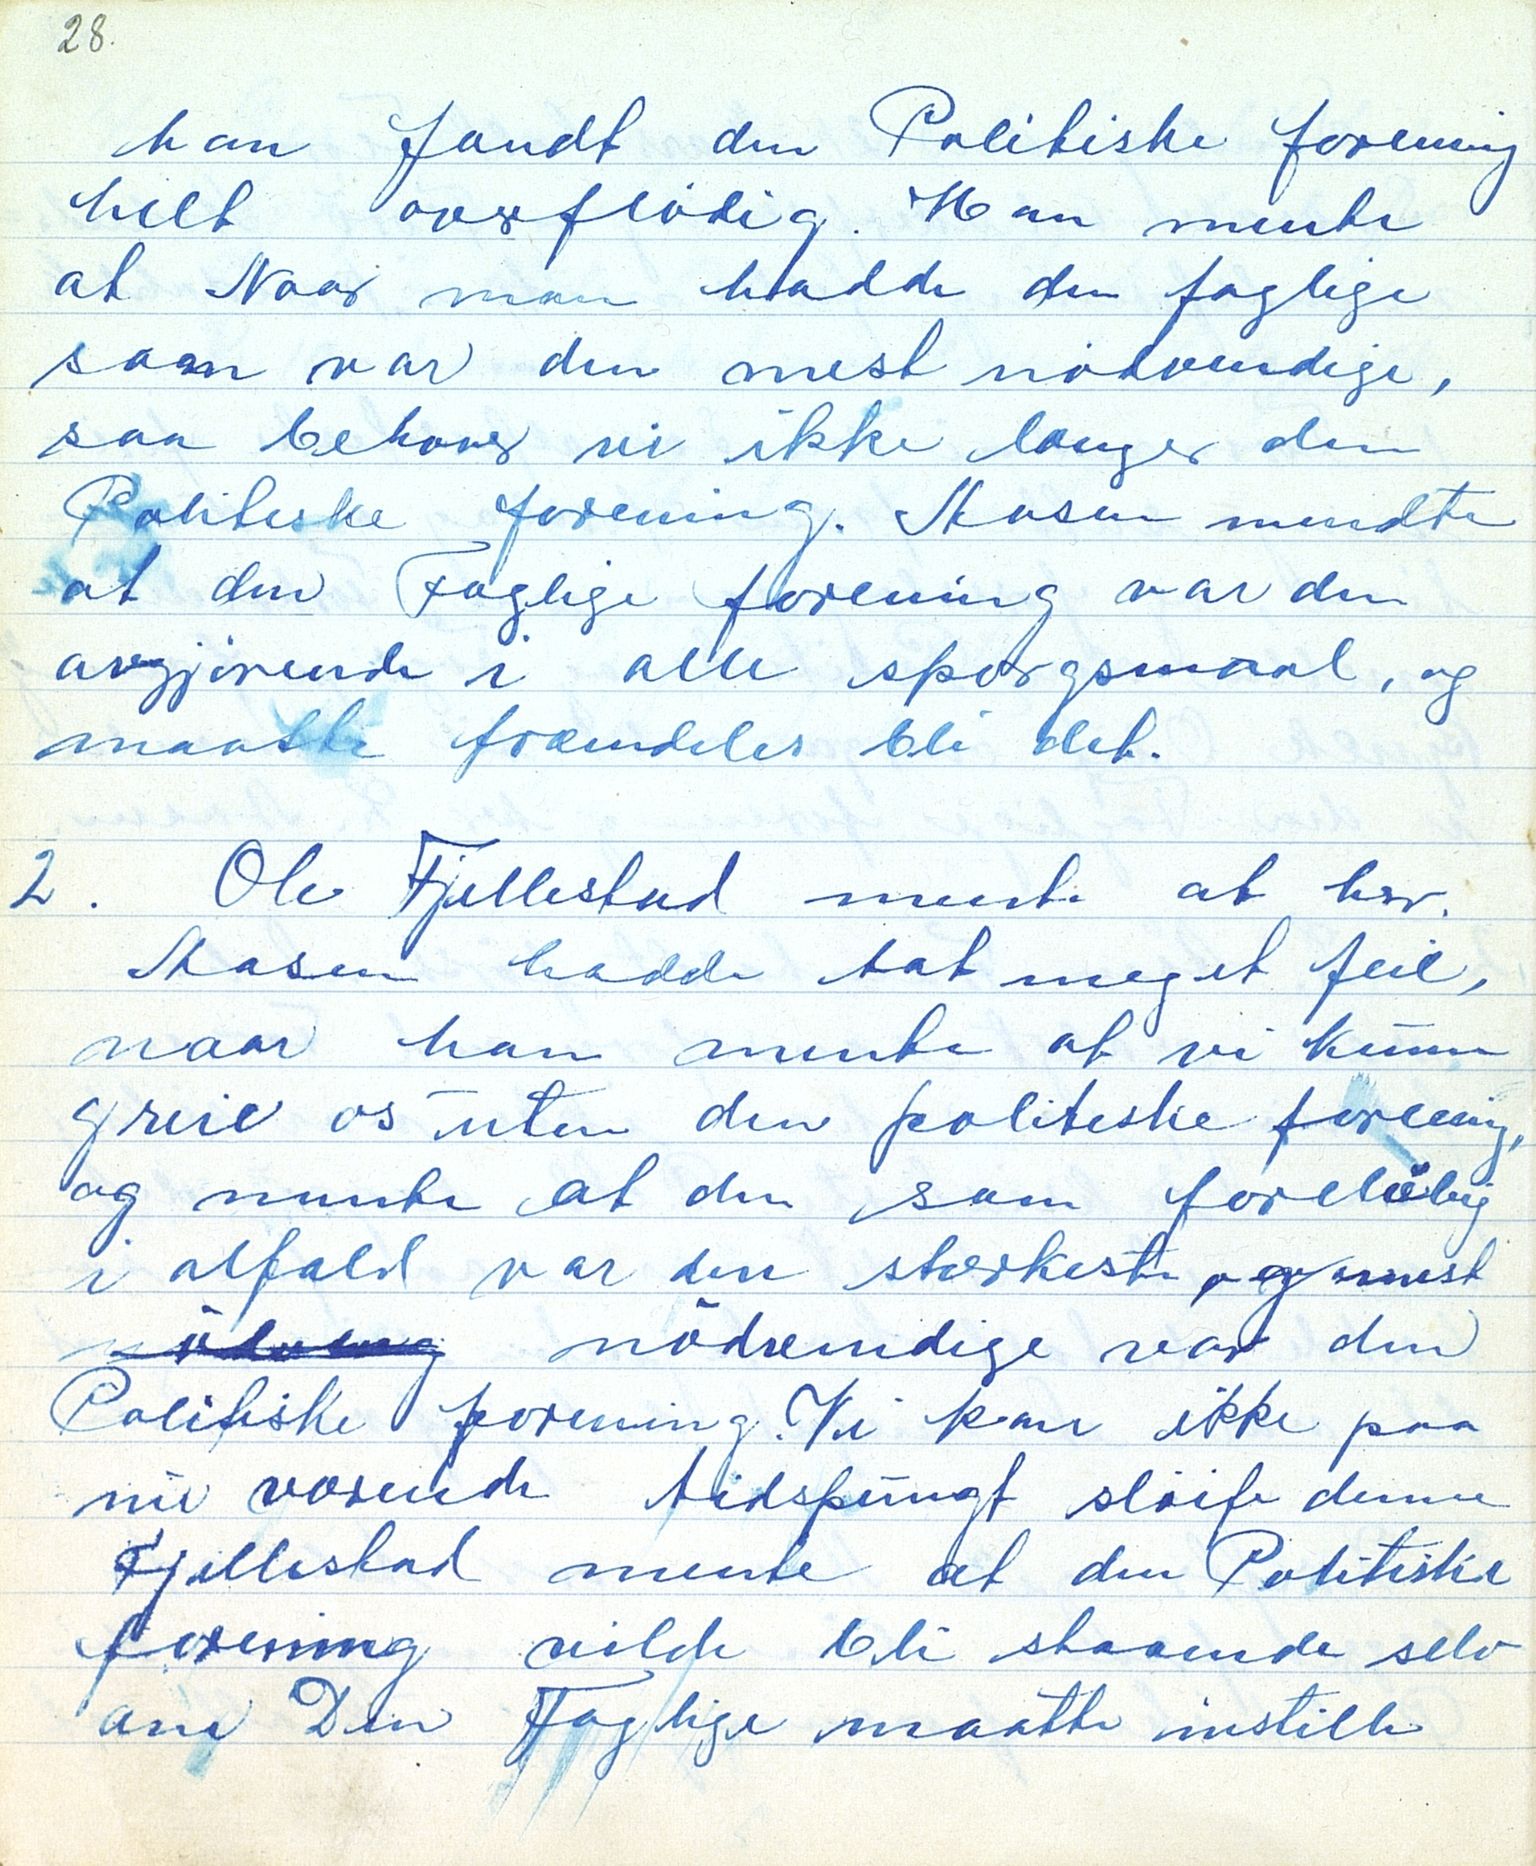 28.
han fandt den Politiske forening
helt overflödig. Han mente
at Naar man hadde den faglige
som var den mest nödvendige,
saa behøver vi ikke længer den
Politiske forening. Aasen mendte
at den Faglige forening var den
avgjörende i alle spørgsmaal, og
maatte fræmdeles bli det.
2. Ole Fjellestad mente at hrr.
Aasen hadde tat meget feil,
naar han mente at vi kunne
greie os uten den politiske forening,
og mente at den som foreløbig
i alfald var den stærkeste og mest
nödvendige var den
Politiske forening. Vi kan ikke paa
nu værende tidspungt slöife denne
Fjellestad mente at den Politiske
forening vilde bli staaende selv
om Den Faglige maatte instille